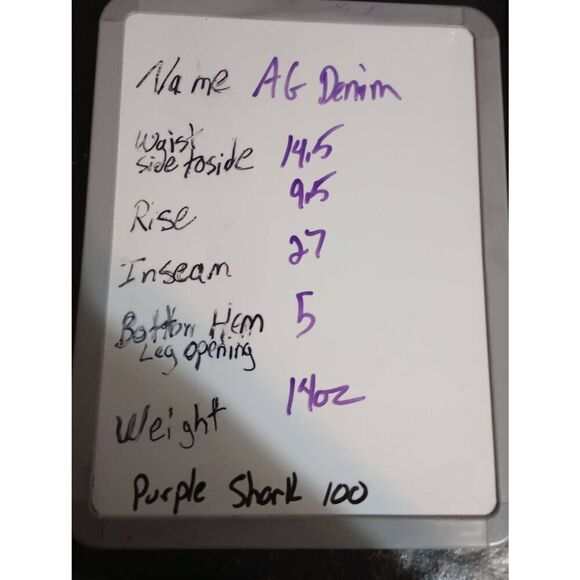 Name AG Denim
Waist
side to side 14.5
Rise 9.5
Inseam 27
Bottom Hem 5
Leg opening
Weight 14oz
Purple Shark 100